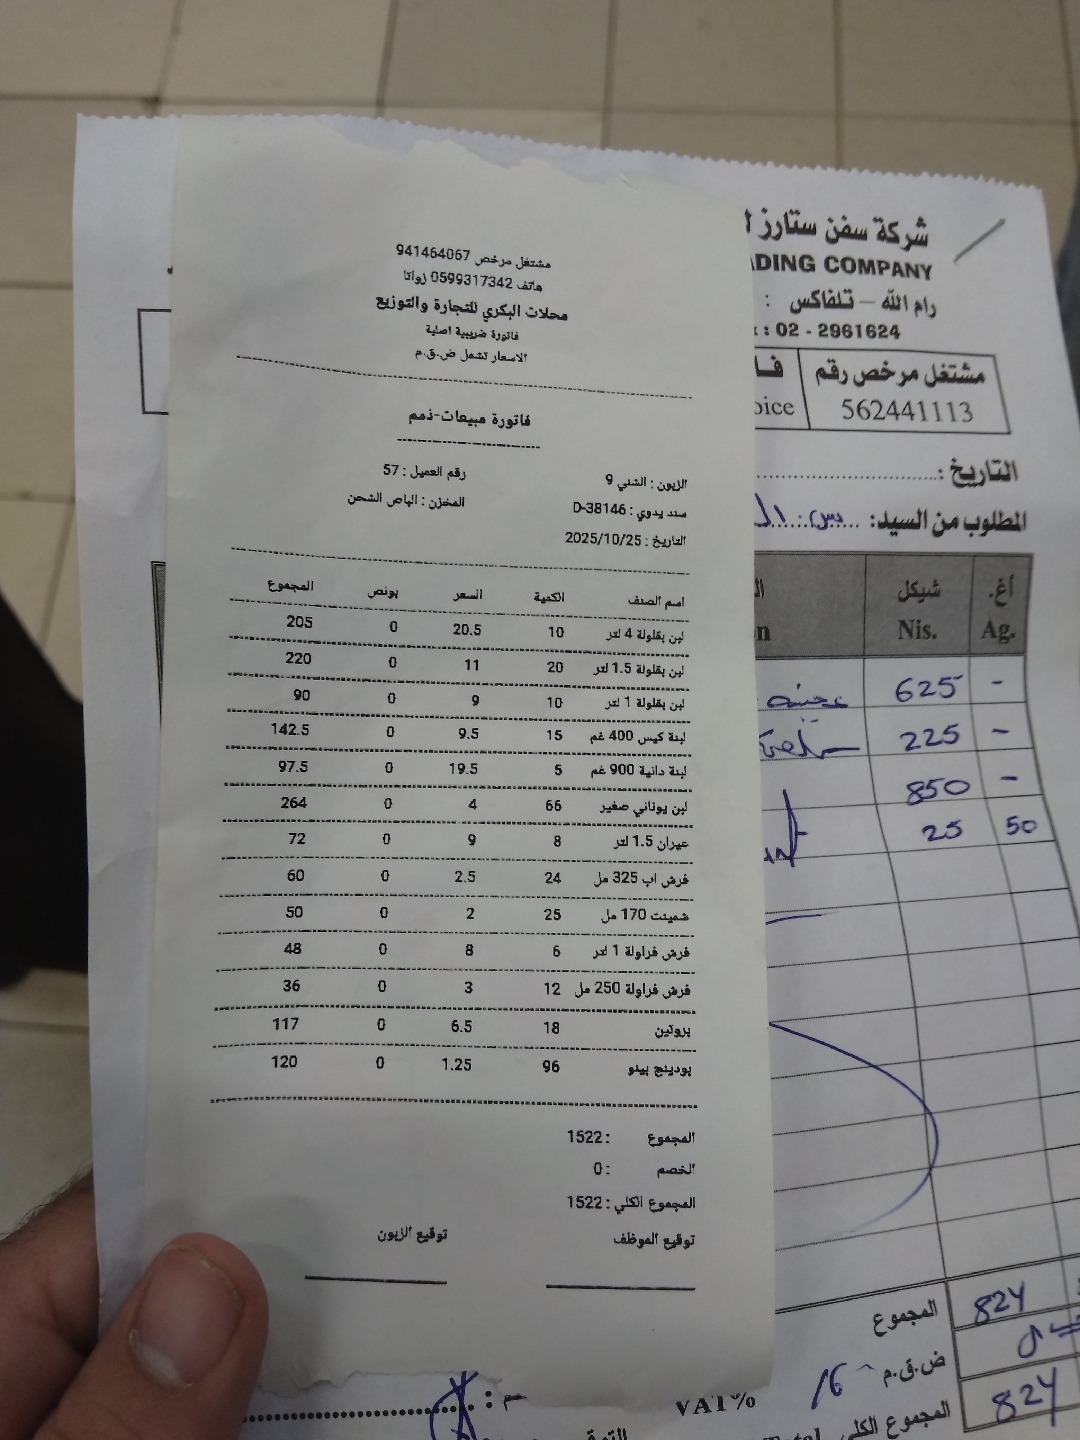 مشتغل مرخص 941464067
هاتف 0599317342 زواتا
محلات البكري للتجارة والتوزيع
فاتورة ضريبية اصلية
الاسعار تشمل ض.ق.م
فاتورة مبيعات-ذمم
الزبون : الشني 9 رقم العميل : 57
سند يدوي : D-38146 المخزن : الباص الشحن
التاريخ : 2025/10/25
اسم الصنف الكمية السعر بونص المجموع
لبن بقلولة 4 لتر 10 20.5 0 205
لبن بقلولة 1.5 لتر 20 11 0 220
لبن بقلولة 1 لتر 10 9 0 90
لبنة كيس 400 غم 15 9.5 0 142.5
لبنة دانية 900 غم 5 19.5 0 97.5
لبن يوناني صغير 66 4 0 264
عيران 1.5 لتر 8 9 0 72
فرش اب 325 مل 24 2.5 0 60
شمينت 170 مل 25 2 0 50
فرش فراولة 1 لتر 6 8 0 48
فرش فراولة 250 مل 12 3 0 36
بروتين 18 6.5 0 117
بودينج بيندو 96 1.25 0 120
المجموع : 1522
الخصم : 0
المجموع الكلي : 1522
توقيع الموظف توقيع الزبون
شركة سفن ستارز
ADING COMPANY
رام الله – تلفاكس :
: 02 - 2961624
مشتغل مرخص رقم
562441113
التاريخ :
المطلوب من السيد:
شيكل أغ.
Nis. Ag.
625 -
225 -
850 -
25 50
المجموع 824
ض.ق.م 16 VAT%
المجموع الكلي 824